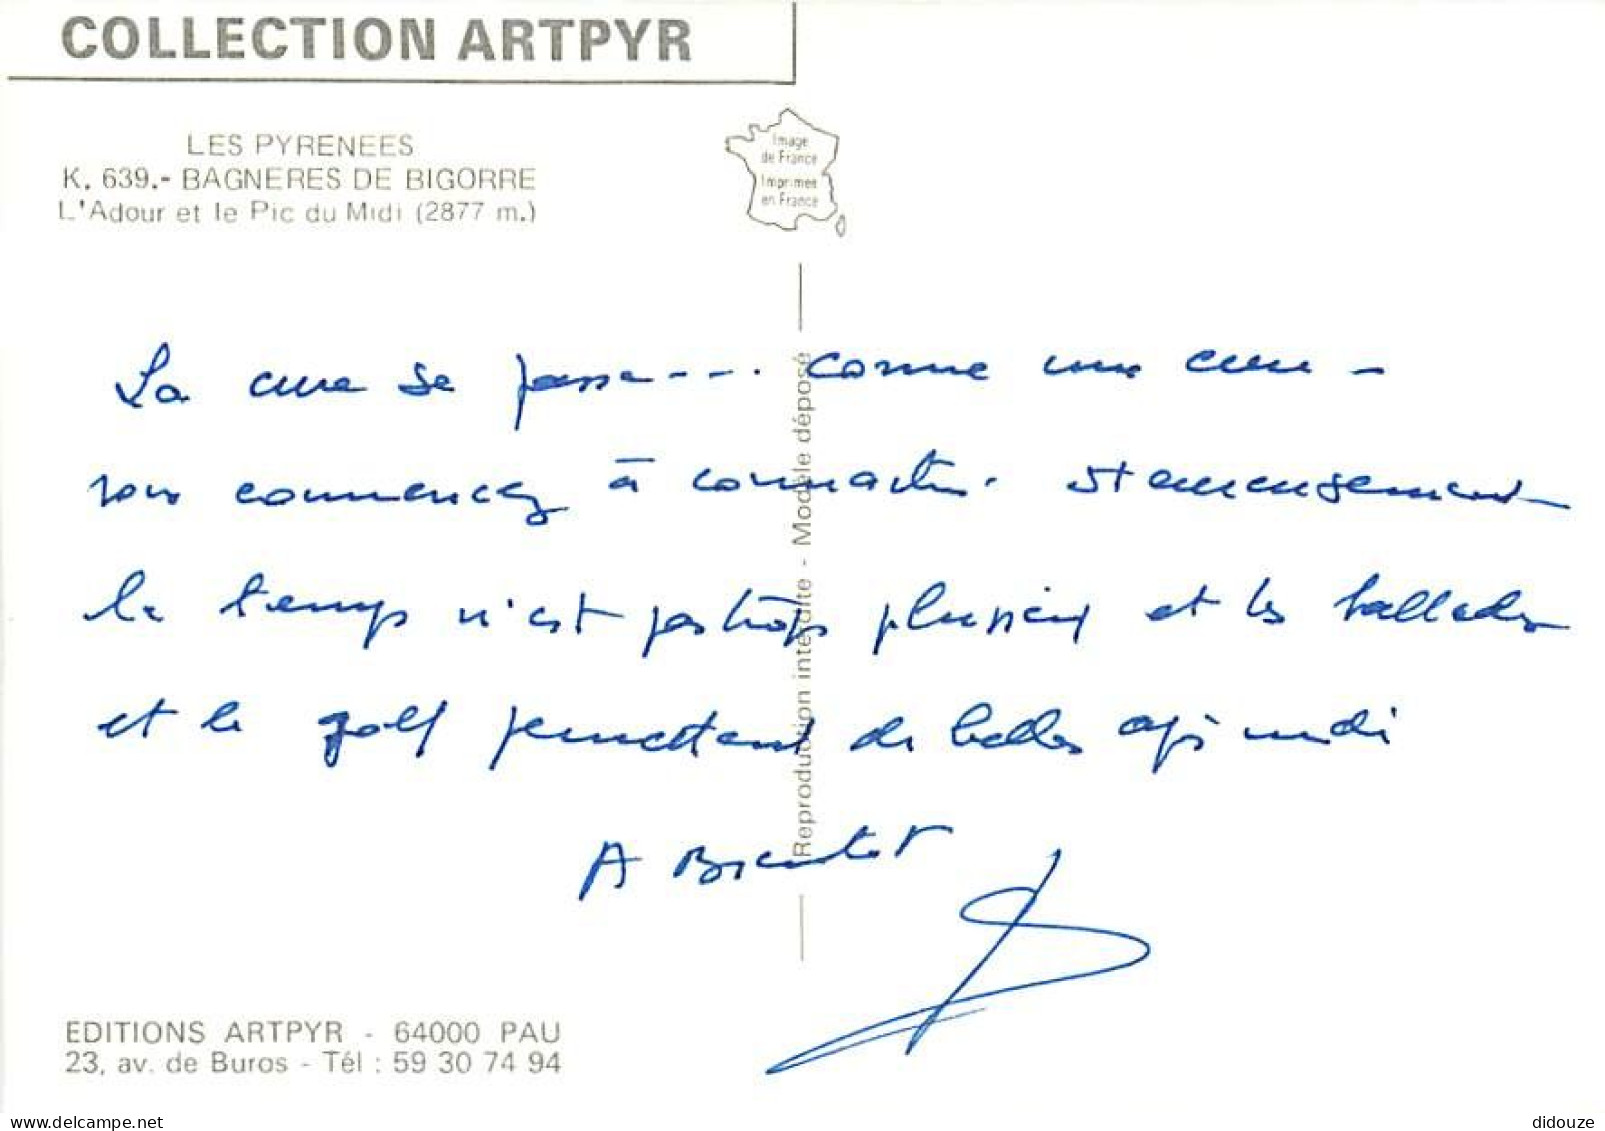 COLLECTION ARTPYR
LES PYRENEES
K. 639.- BAGNERES DE BIGORRE
L'Adour et le Pic du Midi (2877 m.)
Image
de France
Imprimée
en France
Reproduction interdite - Modèle déposé
La cure se passe---. comme une cure -
vous commencez à connaitre. Heureusement
le temps n'est pas trop pluvieux et les ballades
et le golf permettent de belles après midi
A Bientot
EDITIONS ARTPYR - 64000 PAU
23, av. de Buros - Tél : 59 30 74 94
delcampe.net
didouze